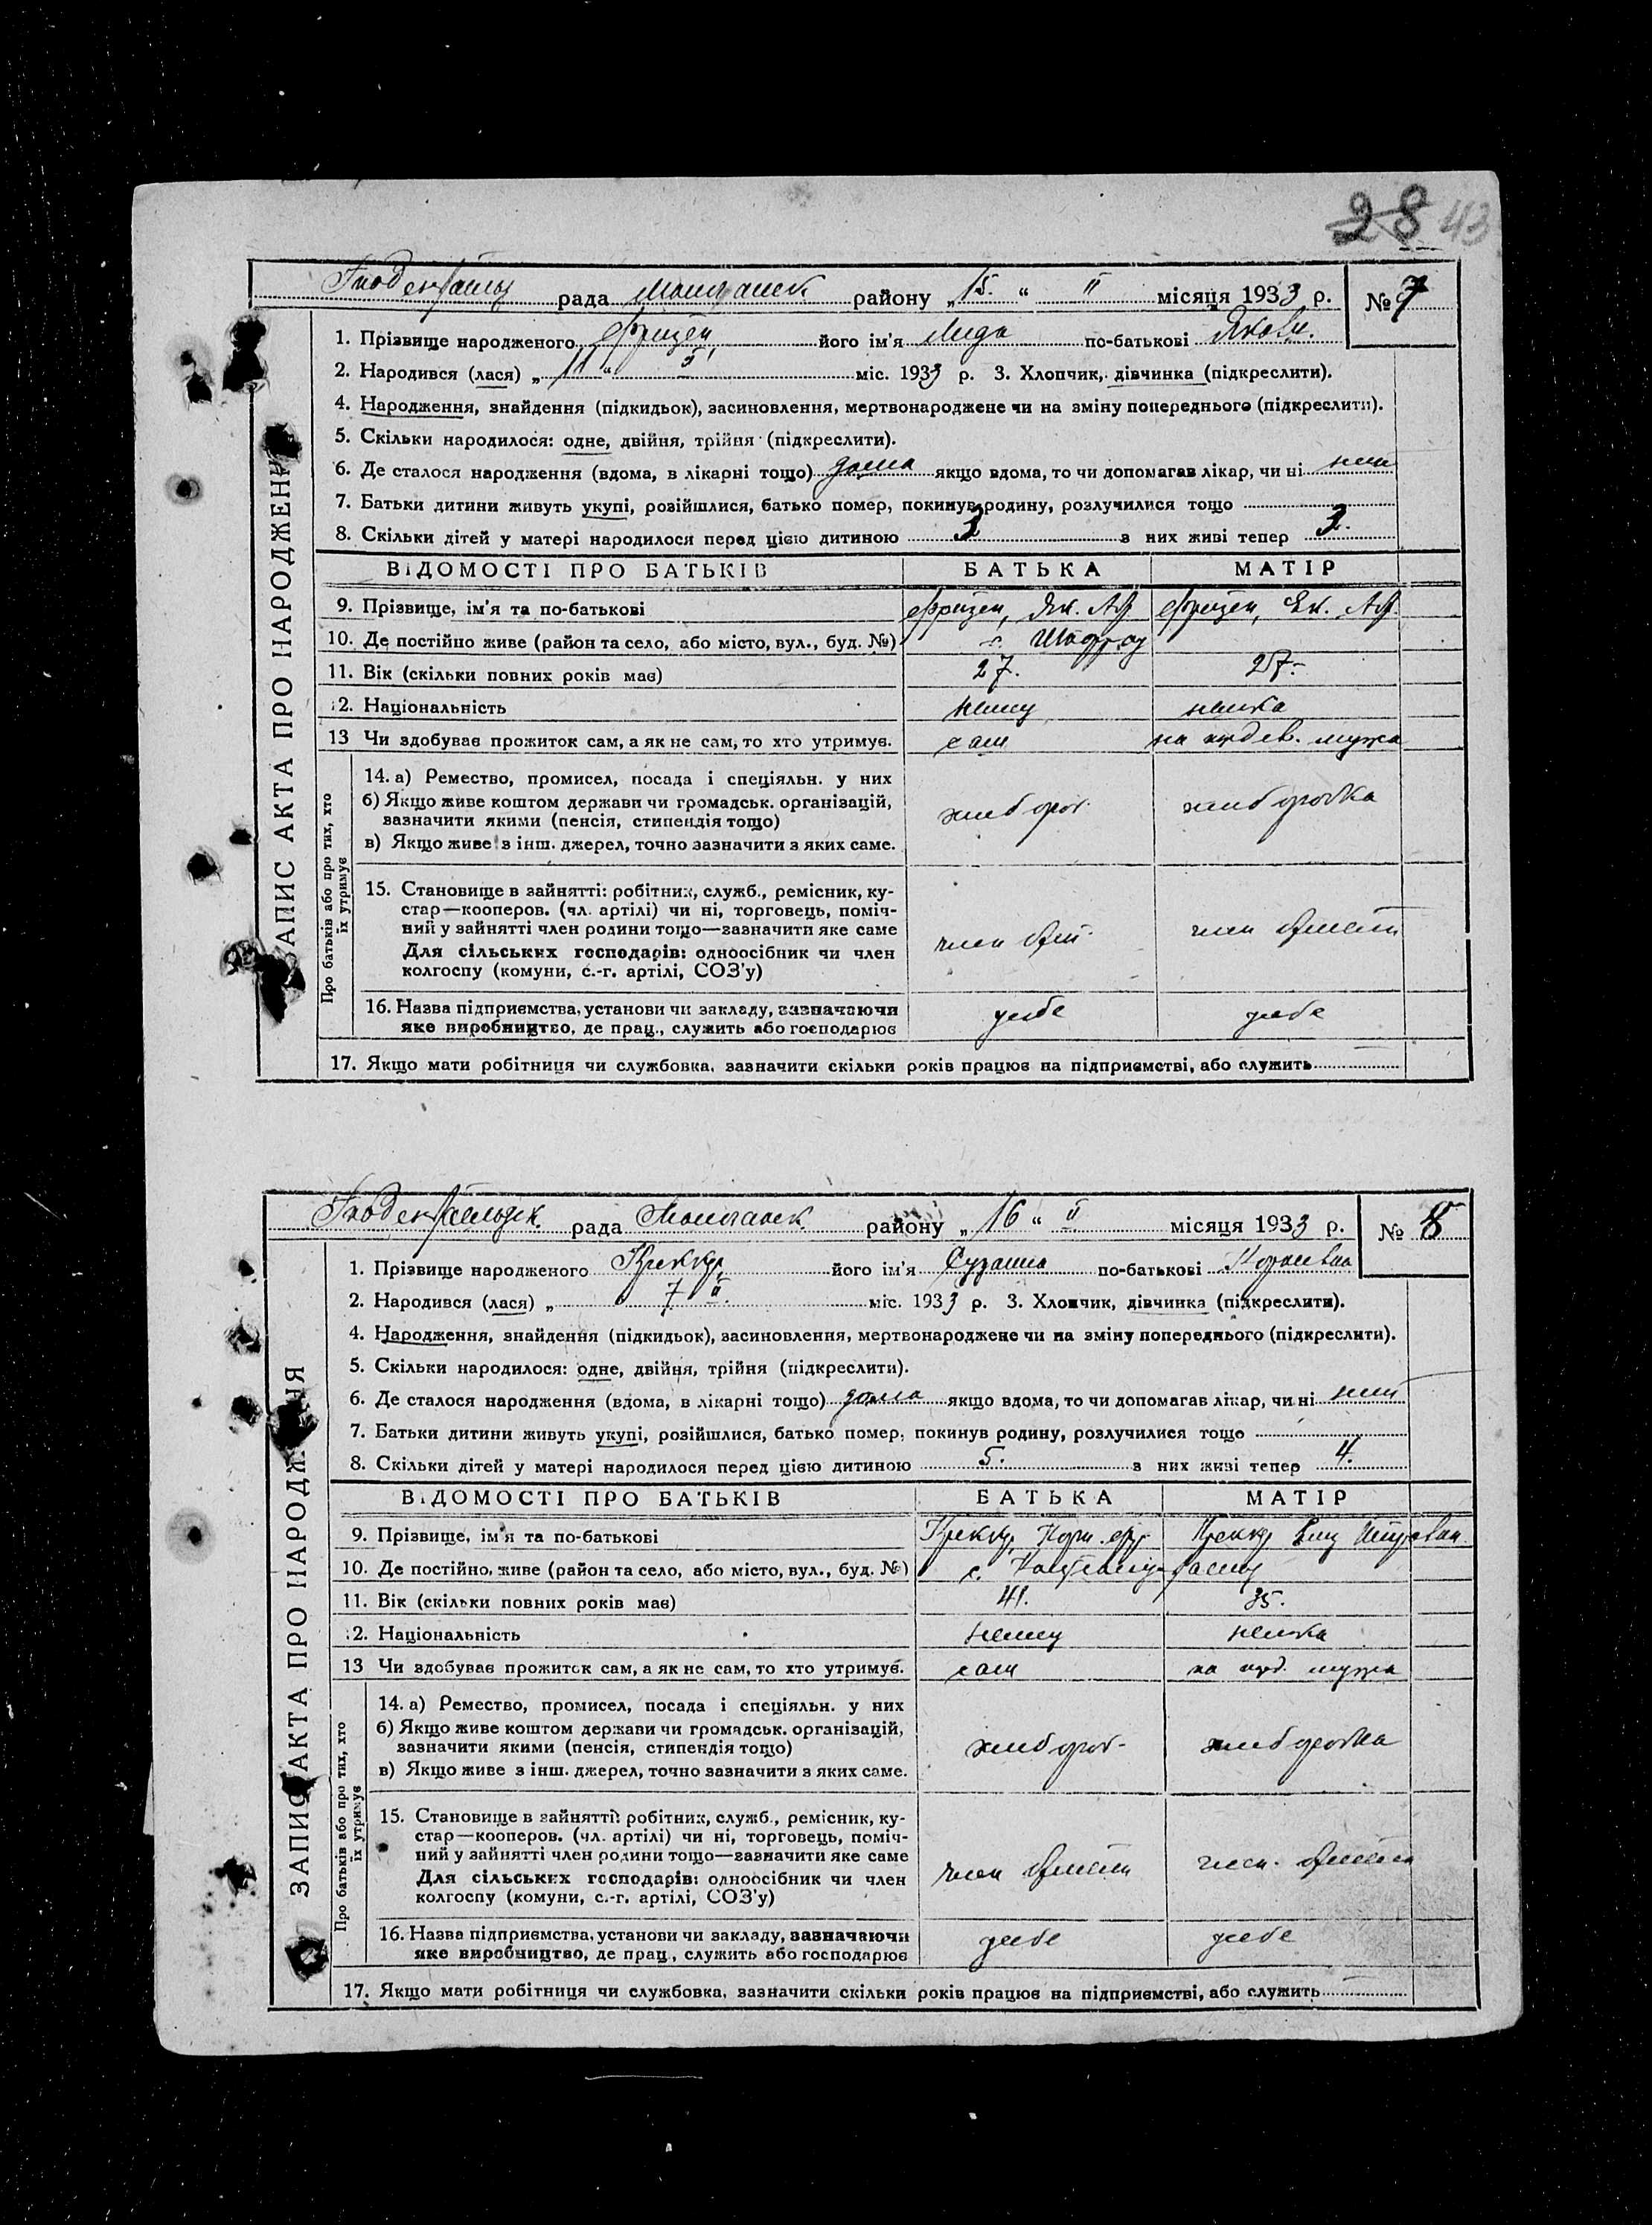 28 43
рада Молочанск району „15. “ II місяця 1933 р. № 7
ЗАПИС АКТА ПРО НАРОДЖЕННЯ
1. Прізвище народженого Фризен, його ім'я Лида по-батькові Яковл.
2. Народився (лася) „ 11 “ міс. 1933 р. 3. Хлопчик, дівчинка (підкреслити).
4. Народження, знайдення (підкидьок), засиновлення, мертвонароджене чи на зміну попереднього (підкреслити).
5. Скільки народилося: одне, двійня, трійня (підкреслити).
6. Де сталося народження (вдома, в лікарні тощо) дома якщо вдома, то чи допомагав лікар, чи ні
7. Батьки дитини живуть укупі, розійшлися, батько помер, покинув родину, розлучилися тощо
8. Скільки дітей у матері народилося перед цією дитиною 3 з них живі тепер 3.
ВІДОМОСТІ ПРО БАТЬКІВ БАТЬКА МАТІР
9. Прізвище, ім'я та по-батькові Фризен, Як. Фризен, Ек.
10. Де постійно живе (район та село, або місто, вул., буд. №) с.
11. Вік (скільки повних років має) 27. 27.
12. Національність немец немка
13 Чи здобуває прожиток сам, а як не сам, то хто утримує. сам на иждев. мужа
Про батьків або про тих, хто їх утримує
14. а) Ремество, промисел, посада і спеціяльн. у них
б) Якщо живе коштом держави чи громадськ. організацій,
зазначити якими (пенсія, стипендія тощо) хлебороб. хлеборобка
в) Якщо живе з інш. джерел, точно зазначити з яких саме.
15. Становище в зайнятті: робітник, служб., ремісник, ку-
стар—кооперов. (чл. артілі) чи ні, торговець, поміч-
ний у зайнятті член родини тощо—зазначити яке саме
член член
Для сільських господарів: одноосібник чи член
колгоспу (комуни, с.-г. артілі, СОЗ'у)
16. Назва підприємства, установи чи закладу, зазначаючи
яке виробництво, де прац., служить або господарює
17. Якщо мати робітниця чи службовка, зазначити скільки років працює на підприємстві, або служить
рада Молочанск. району „ 16 “ II місяця 1933 р. № 8
ЗАПИС АКТА ПРО НАРОДЖЕННЯ
1. Прізвище народженого Креккер, його ім'я Сузанна по-батькові
2. Народився (лася) „ 7 II. міс. 1933 р. 3. Хлопчик, дівчинка (підкреслити).
4. Народження, знайдення (підкидьок), засиновлення, мертвонароджене чи на зміну попереднього (підкреслити).
5. Скільки народилося: одне, двійня, трійня (підкреслити).
6. Де сталося народження (вдома, в лікарні тощо) дома якщо вдома, то чи допомагав лікар, чи ні
7. Батьки дитини живуть укупі, розійшлися, батько помер, покинув родину, розлучилися тощо
8. Скільки дітей у матері народилося перед цією дитиною 5. з них живі тепер 4.
ВІДОМОСТІ ПРО БАТЬКІВ БАТЬКА МАТІР
9. Прізвище, ім'я та по-батькові Креккер, Корн. Креккер
10. Де постійно живе (район та село, або місто, вул., буд. №) с.
11. Вік (скільки повних років має) 41. 35.
12. Національність немец немка
13 Чи здобуває прожиток сам, а як не сам, то хто утримує. сам на ижд. мужа
Про батьків або про тих, хто їх утримує
14. а) Ремество, промисел, посада і спеціяльн. у них
б) Якщо живе коштом держави чи громадськ. організацій,
зазначити якими (пенсія, стипендія тощо) хлебороб- хлеборобка
в) Якщо живе з інш. джерел, точно зазначити з яких саме.
15. Становище в зайнятті: робітник, служб., ремісник, ку-
стар—кооперов. (чл. артілі) чи ні, торговець, поміч-
ний у зайнятті член родини тощо—зазначити яке саме
член член
Для сільських господарів: одноосібник чи член
колгоспу (комуни, с.-г. артілі, СОЗ'у)
16. Назва підприємства, установи чи закладу, зазначаючи
яке виробництво, де прац., служить або господарює
17. Якщо мати робітниця чи службовка, зазначити скільки років працює на підприємстві, або служить